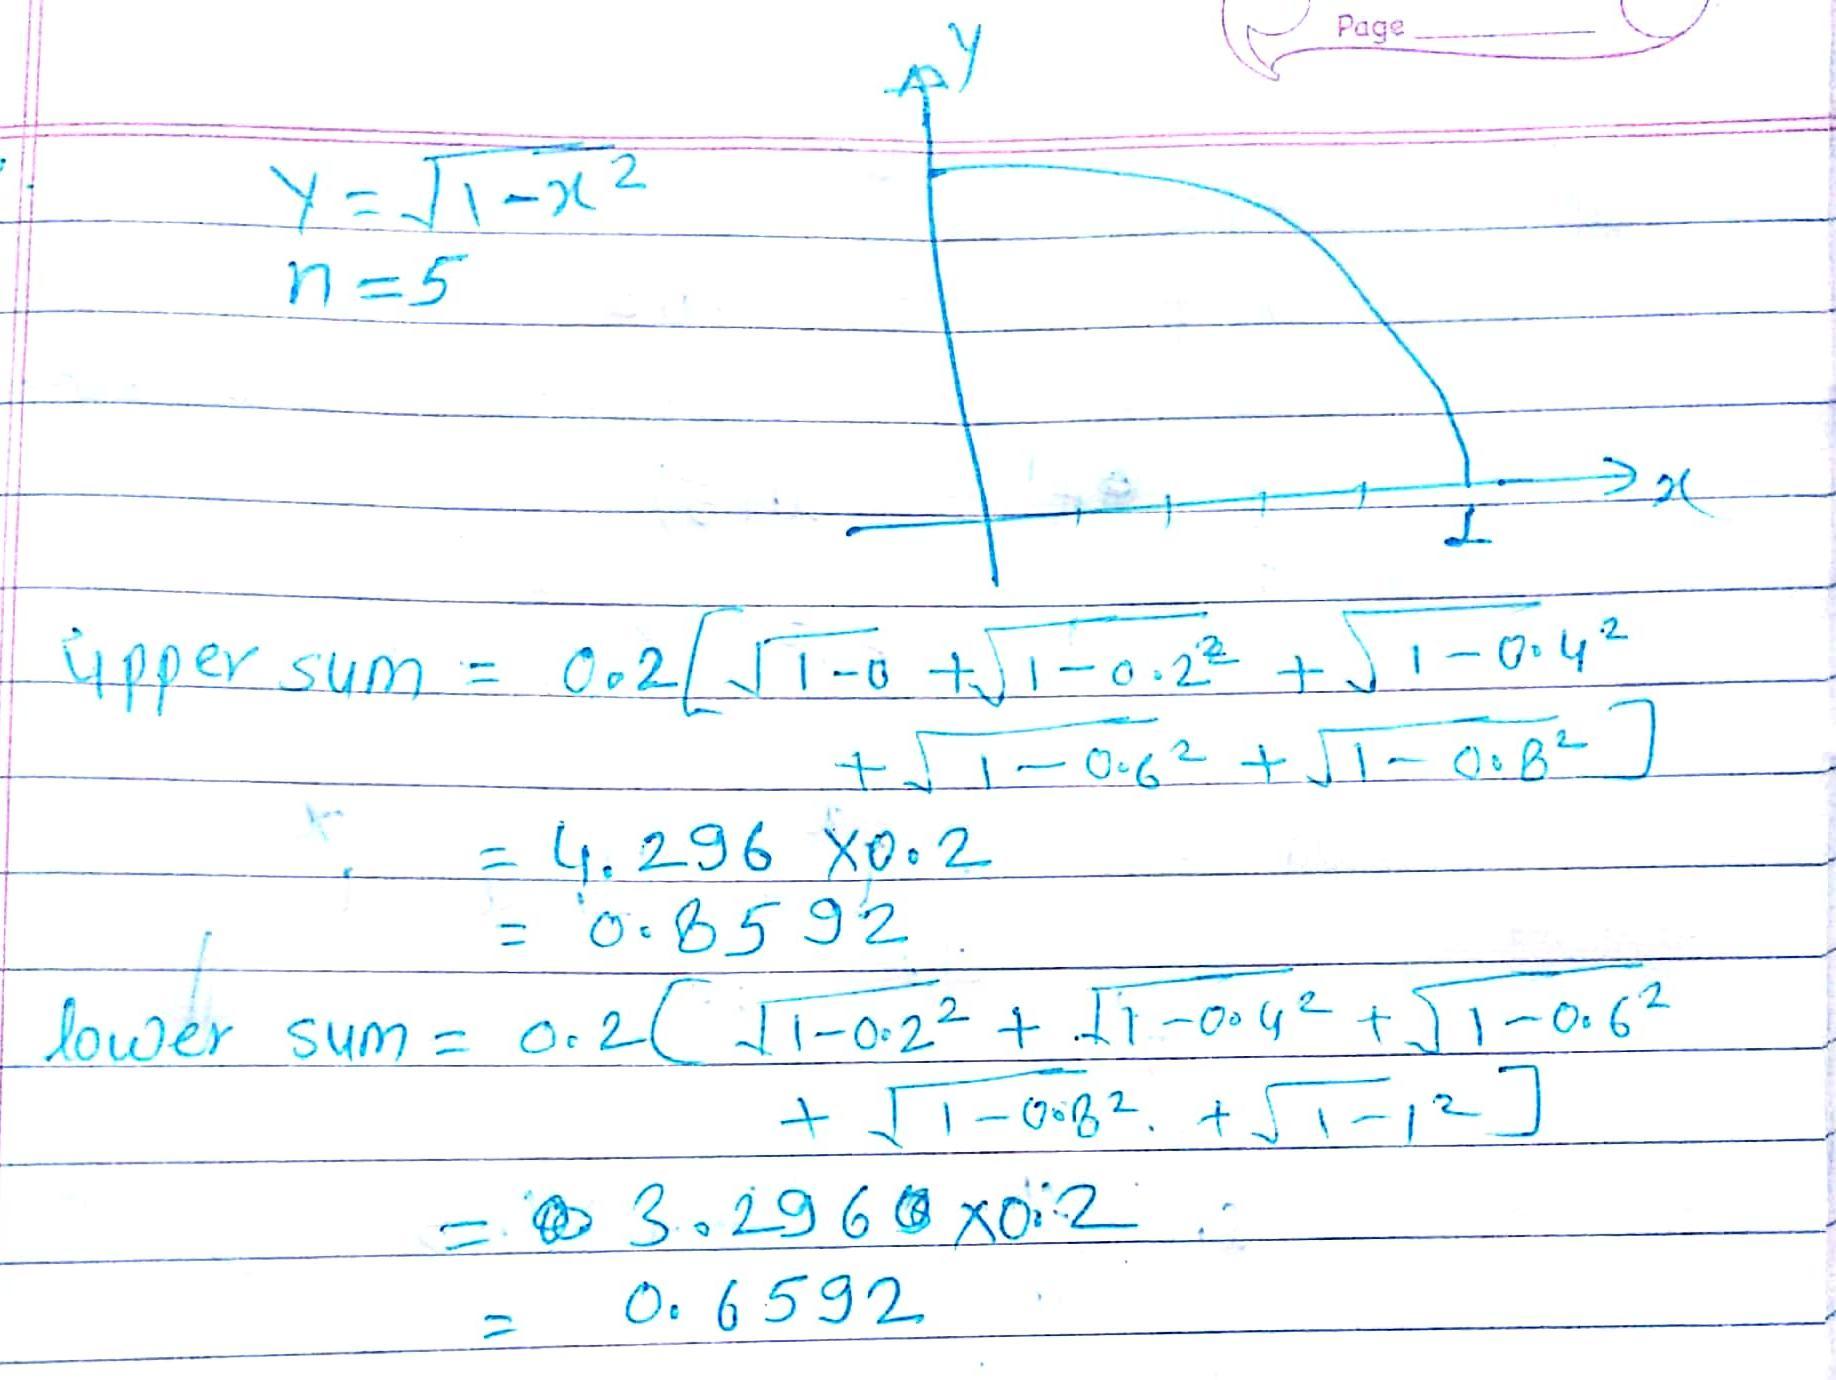 Page
y
y = √1-x²
n = 5
x
1
upper sum = 0.2[√1-0 + √1-0.2² + √1-0.4²
+ √1-0.6² + √1-0.8²]
= 4.296 x0.2
= 0.8592
lower sum = 0.2( √1-0.2² + √1-0.4² + √1-0.6²
+ √1-0.8² + √1-1²]
= 3.296 x0.2
= 0.6592